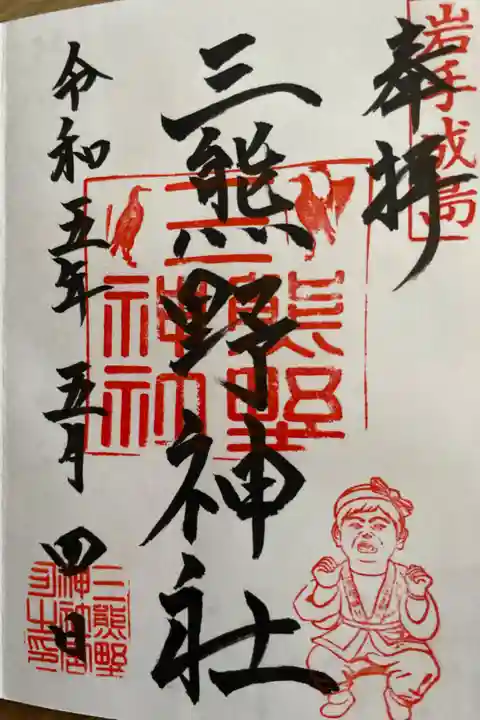 岩手成島
奉拝
三熊野神社
三熊野神社
令和五年五月四日
三熊野
神社宮
司之印